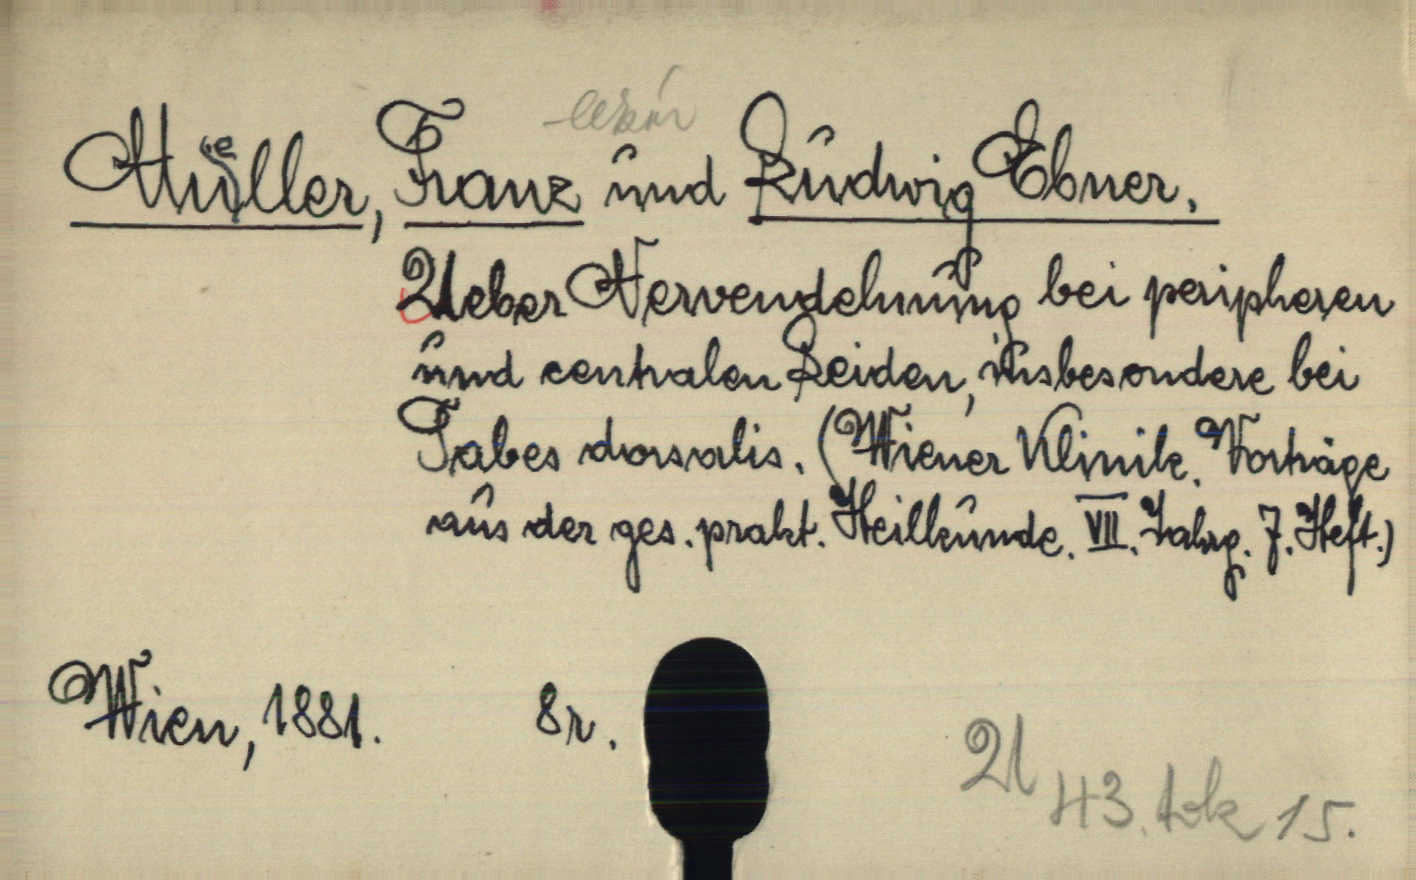 lékař
Müller, Franz und Ludwig Ebner.
Ueber Nervendehnung bei peripheren
und centralen Leiden, insbesondere bei
Tabes dorsalis. (Wiener Klinik. Vorträge
aus der ges. prakt. Heilkunde. VII. Jahrg. 7. Heft.)
Wien, 1881. 8r.
43. 15.